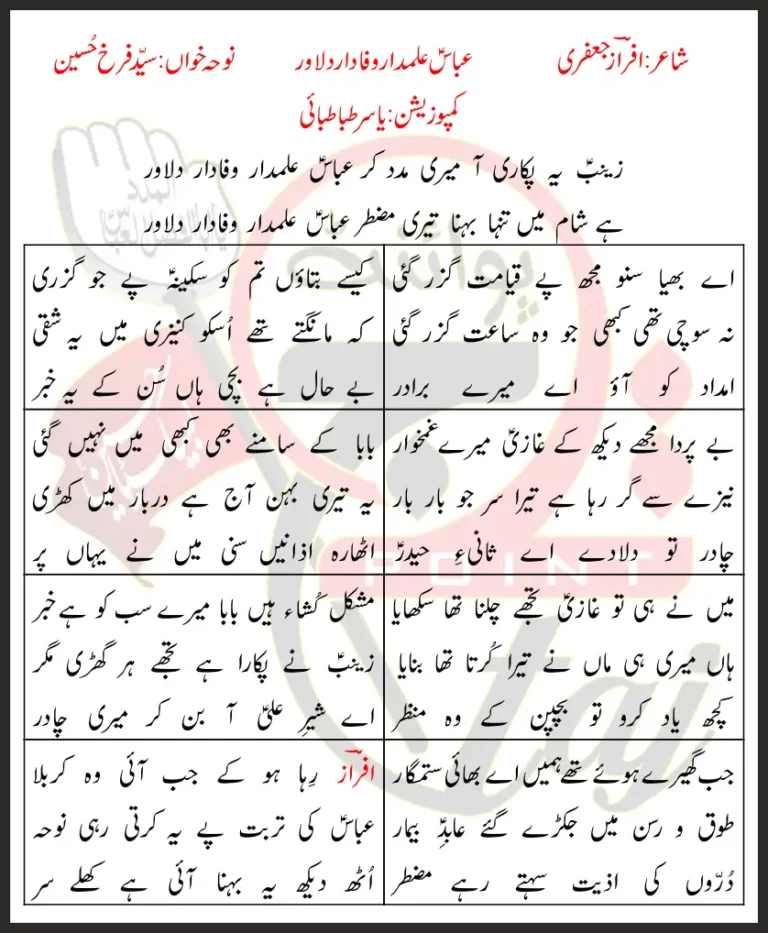 شاعر: افرازؔ جعفری
عباسؑ علمدار وفادار دلاور
نوحہ خواں: سیّد فرخ حُسین
کمپوزیشن: یاسر طباطبائی
زینبؑ یہ پکاری آ میری مدد کر عباسؑ علمدار وفادار دلاور
ہے شام میں تنہا بہنا تیری مضطر عباسؑ علمدار وفادار دلاور
اے بھیا سنو مجھ پے قیامت گزر گئی
نہ سوچی تھی کبھی جو وہ ساعت گزر گئی
امداد کو آؤ اے میرے برادر
کیسے بتاؤں تم کو سکینہؑ پے جو گزری
کہ مانگتے تھے اُسکو کنیزی میں یہ شقی
بے حال ہے بچی ہاں سُن کے یہ خبر
بے پردا مجھے دیکھ کے غازیؑ میرے غمخوار
نیزے سے گر رہا ہے تیرا سر جو بار بار
چادر تو دلادے اے ثانیءِ حیدرؑ
بابا کے سامنے بھی کبھی میں نہیں گئی
یہ تیری بہن آج ہے دربار میں کھڑی
اٹھارہ اذانیں سنی میں نے یہاں پر
میں نے ہی تو غازیؑ تجھے چلنا تھا سکھایا
ہاں میری ہی ماں نے تیرا کُرتا تھا بنایا
کچھ یاد کرو تو بچپن کے وہ منظر
مشکل کُشاء ہیں بابا میرے سب کو ہے خبر
زینبؑ نے پکارا ہے تجھے ہر گھڑی مگر
اے شیرِ علیؑ آ بن کر میری چادر
جب گھیرے ہوئے تھے ہمیں اے بھائی ستمگار
طوق و رسن میں جکڑے گئے عابدِؑ بیمار
دُرّوں کی اذیت سہتے رہے مضطر
افرازؔ رِہا ہو کے جب آئی وہ کربلا
عباسؑ کی تربت پے یہ کرتی رہی نوحہ
اُٹھ دیکھ یہ بہنا آئی ہے کھلے سر
پوائنٹ
POINT
taj